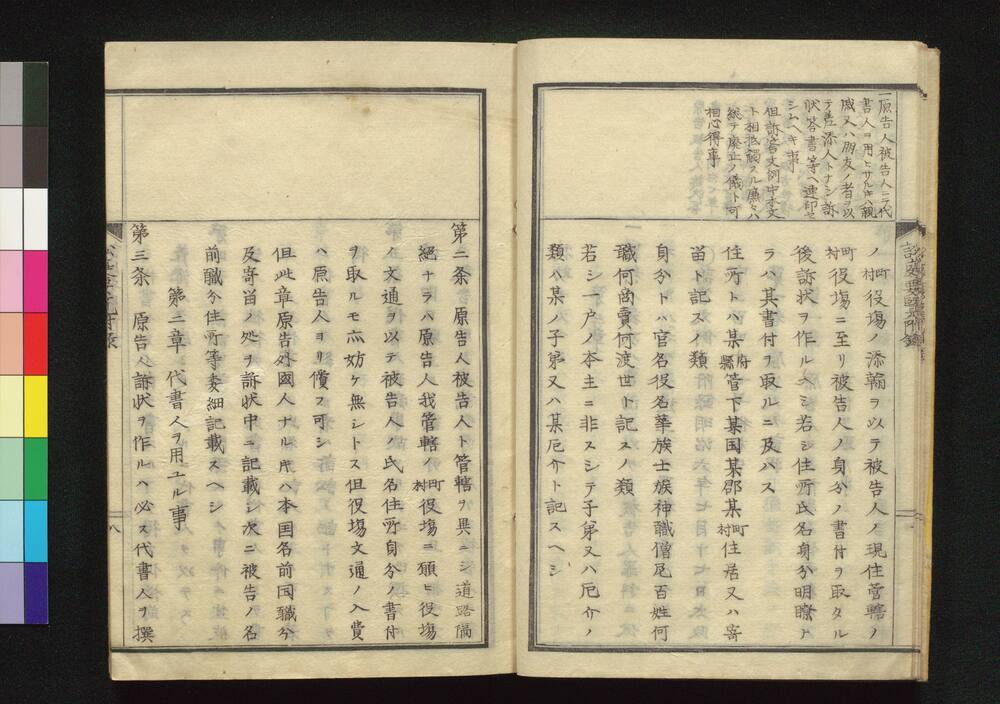 一原告人被告人ニテ代
書人ヲ用ヒサルキハ親
戚又ハ朋友ノ者ヲ以
テ差添人トナシ訴
状答書等ヘ連印セ
シムヘキ事
但訴答文例中本文
ト相抵觸スル廉々ハ
総テ廃止ノ儀ト可
相心得事
ノ町村役塲ノ添翰ヲ以テ被告人ノ現住管轄ノ
町村役塲ニ至リ被告人ノ身分ノ書付ヲ取タル
後訴状ヲ作ルヘシ若シ住所氏名身分明瞭ナ
ラハ其書付ヲ取ルニ及ハス
住所トハ某府縣管下某国某郡某町村住居又ハ寄
留ト記スノ類
身分トハ官名役名華族士族神職僧尼百姓何
職何商賣何渡世ト記スノ類
若シ一户ノ本主ニ非スシテ子弟又ハ厄介ノ
類ハ某ノ子弟又ハ某厄介ト記スヘシ
第二条 原告人被告人ト管轄ヲ異ニシ道路隔
絶ナラハ原告人我管轄ノ町村役塲ニ願ヒ役塲
ノ文通ヲ以テ被告人ノ氏名住所身分ノ書付
ヲ取ルモ亦妨ケ無シトス但役塲文通ノ入費
ハ原告人ヨリ償フ可シ
但此章原告外國人ナル片ハ本国名前国職分
及寄留ノ処ヲ訴状中ニ記載シ次ニ被告ノ名
前職分住所等委細記載スヘシ
第二章 代書人ヲ用ユル事
第三条 原告人訴状ヲ作ルハ必ス代書人ヲ撰
八